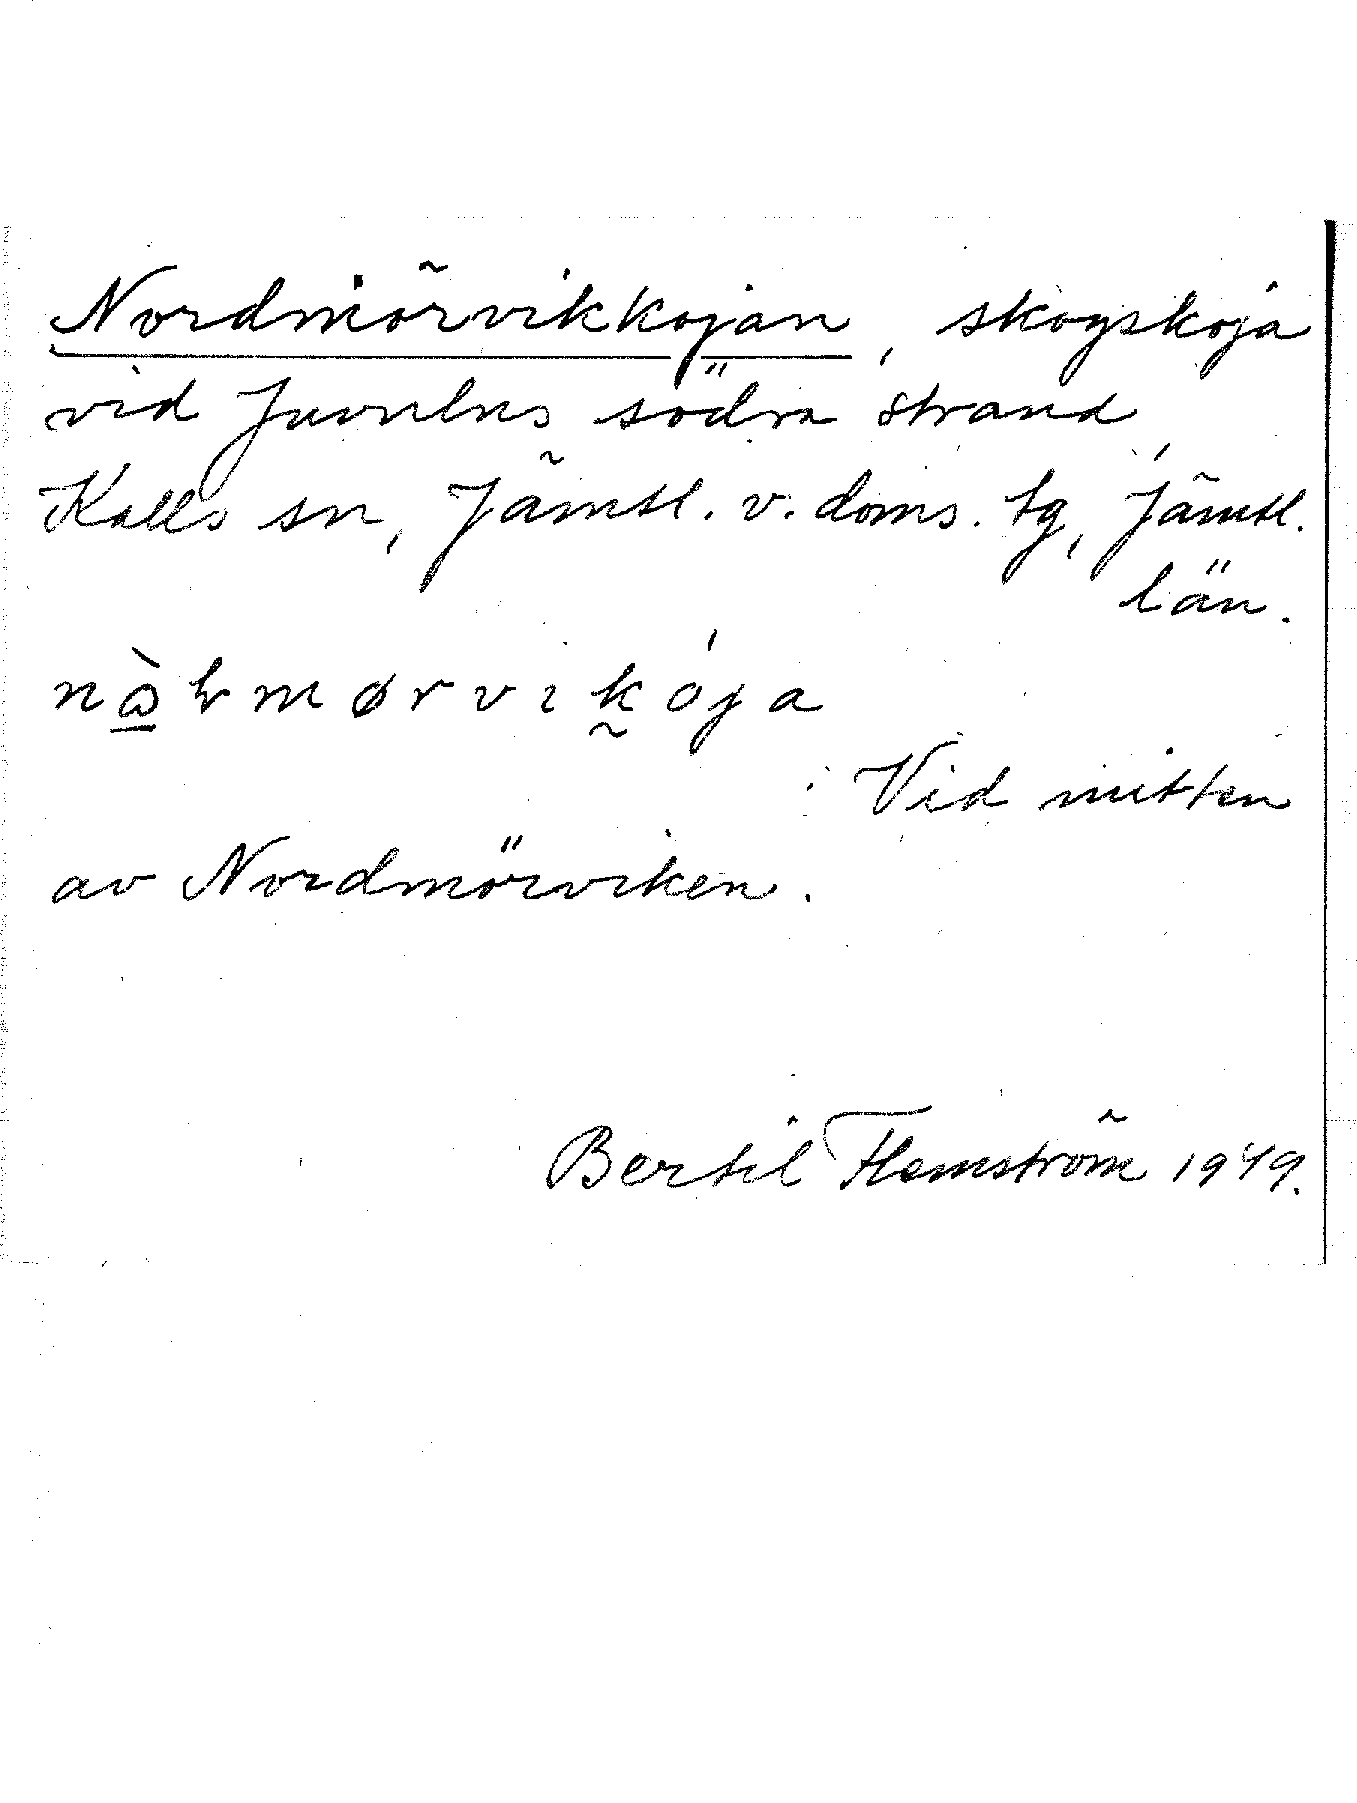 Nordmörvikkojan, skogskoja
vid Juvulns södra strand,
Kalls sn, Jämtl. v. doms. tg, Jämtl.
län.
Vid mitten
av Nordmörviken.
Bertil Flemström 1949.